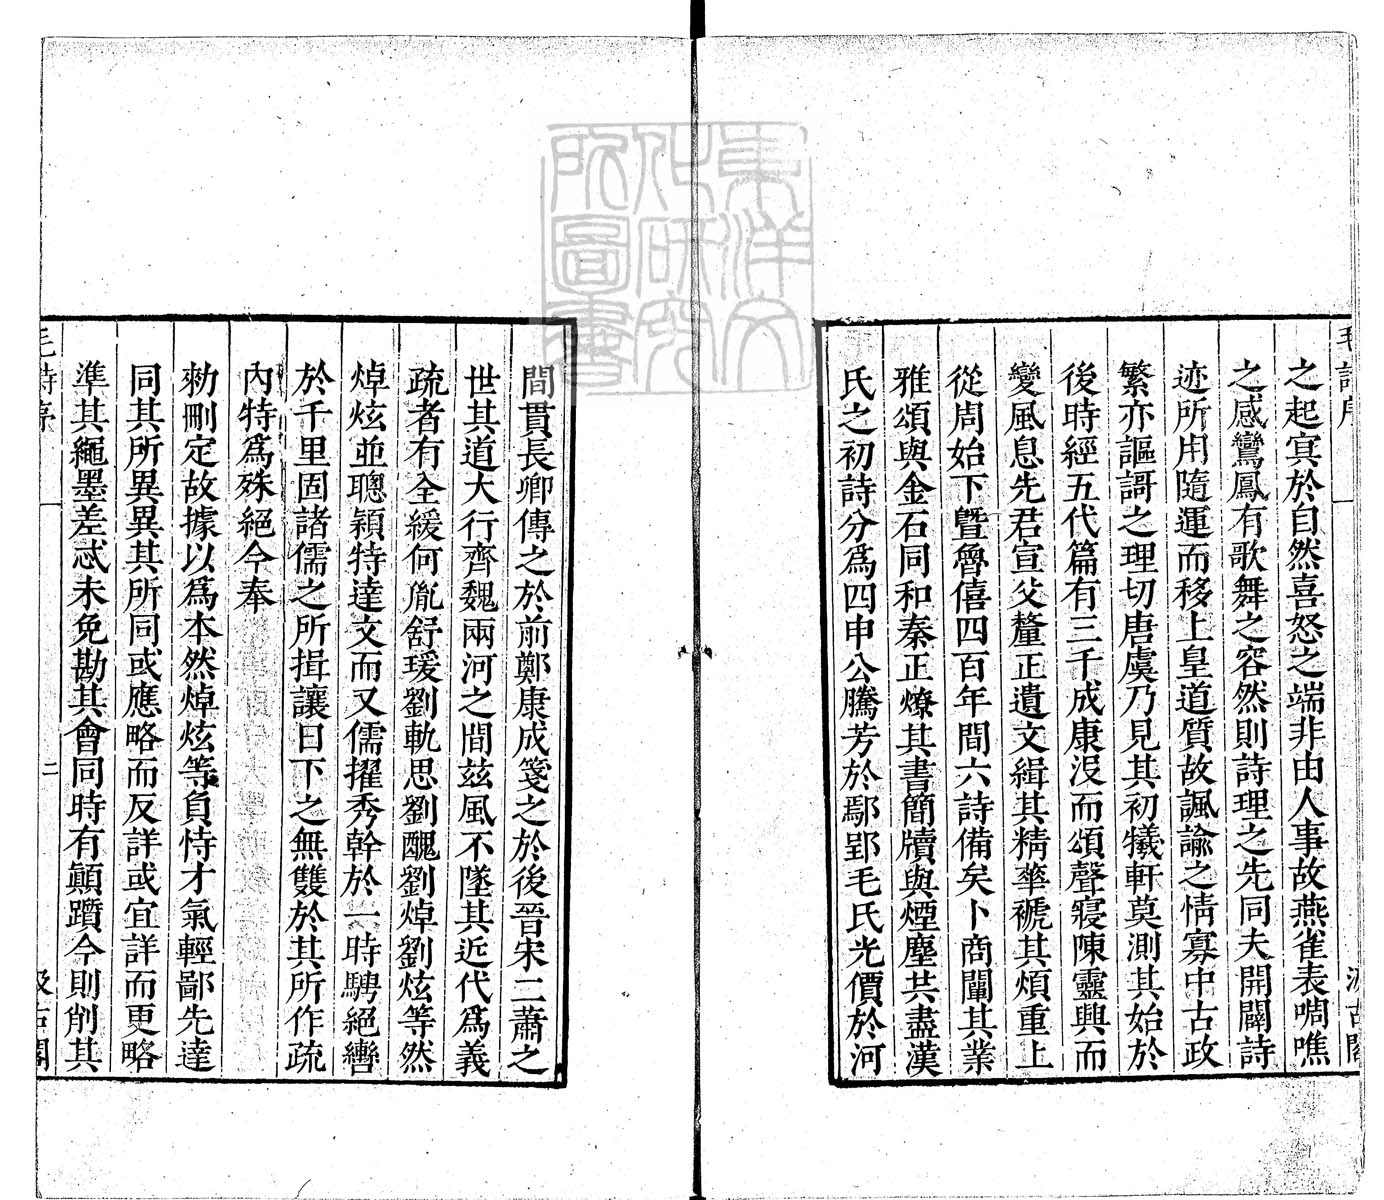 之起㝠於自然喜怒之端非由人事故燕雀表啁噍
之感鸞鳳有歌舞之容然則詩理之先同夫開闢詩
迹所用隨運而移上皇道質故諷諭之情寡中古政
繁亦謳謌之理切唐虞乃見其初犧軒莫測其始於
後時經五代篇有三千成康没而頌聲寢陳靈興而
變風息先君宣父釐正遺文緝其精華褫其煩重上
從周始下曁魯僖四百年間六詩備矣卜商闡其業
雅頌與金石同和秦正燎其書簡牘與煙塵共盡漢
氏之初詩分爲四申公騰芳於鄢郢毛氏光價於河
間貫長卿傳之於前鄭康成箋之於後晉宋二蕭之
世其道大行齊魏兩河之間兹風不墜其近代爲義
疏者有全緩何胤舒瑗劉軌思劉醜劉焯劉炫等然
焯炫並聰穎特達文而又儒擢秀幹於一時騁絕轡
於千里固諸儒之所揖讓日下之無雙於其所作疏
內特爲殊絕今奉
勑刪定故據以爲本然焯炫等負恃才氣輕鄙先達
同其所異異其所同或應略而反詳或宜詳而更略
準其繩墨差忒未免勘其會同時有顛躓今則削其
毛詩序
二
東洋文
化研究
所圖書